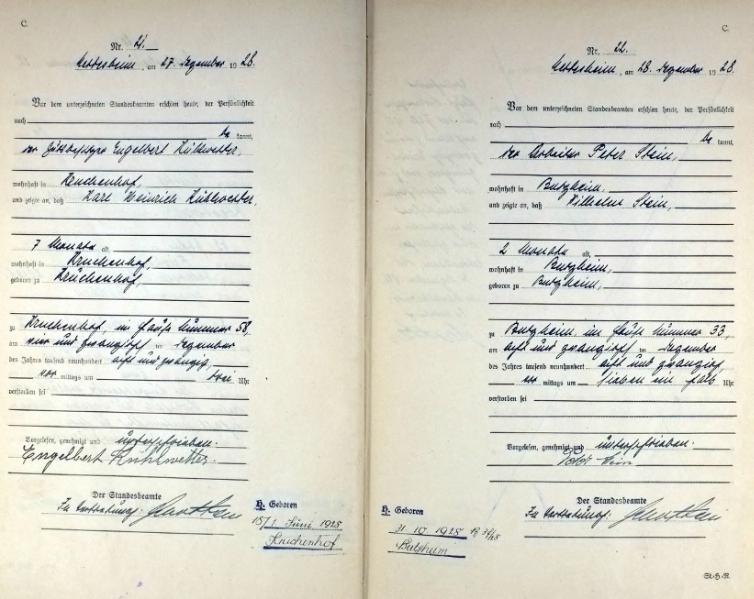 C.
Nr. 21.
am 27. Dezember 1928.
Vor dem unterzeichneten Standesbeamten erschien heute, der Persönlichkeit
nach
be kannt,
der Engelbert Kühlwetter,
wohnhaft in Kruchenhof,
und zeigte an, daß Karl Heinrich Kühlwetter,
7 Monate alt,
wohnhaft in Kruchenhof,
geboren zu Kruchenhof,
zu Kruchenhof, im Hause Nummer 58,
am und zwanzigsten Dezember
des Jahres tausend neunhundert acht und zwanzig
vor mittags um drei Uhr
verstorben sei
Vorgelesen, genehmigt und unterschrieben.
Engelbert Kühlwetter.
Der Standesbeamte
In Vertretung:
H. Geboren
Juni 1925
Kruchenhof
C.
Nr. 22.
am 28. Dezember 1928.
Vor dem unterzeichneten Standesbeamten erschien heute, der Persönlichkeit
nach
be kannt,
der Arbeiter Peter Stein,
wohnhaft in Burgheim,
und zeigte an, daß Wilhelm Stein,
2 Monate alt,
wohnhaft in Burgheim,
geboren zu Burgheim,
zu Burgheim, im Hause Nummer 33,
am acht und zwanzigsten Dezember
des Jahres tausend neunhundert acht und zwanzig
vor mittags um sieben ein halb Uhr
verstorben sei
Vorgelesen, genehmigt und unterschrieben.
Der Standesbeamte
In Vertretung:
H. Geboren
31 10 1925
St.H.R.